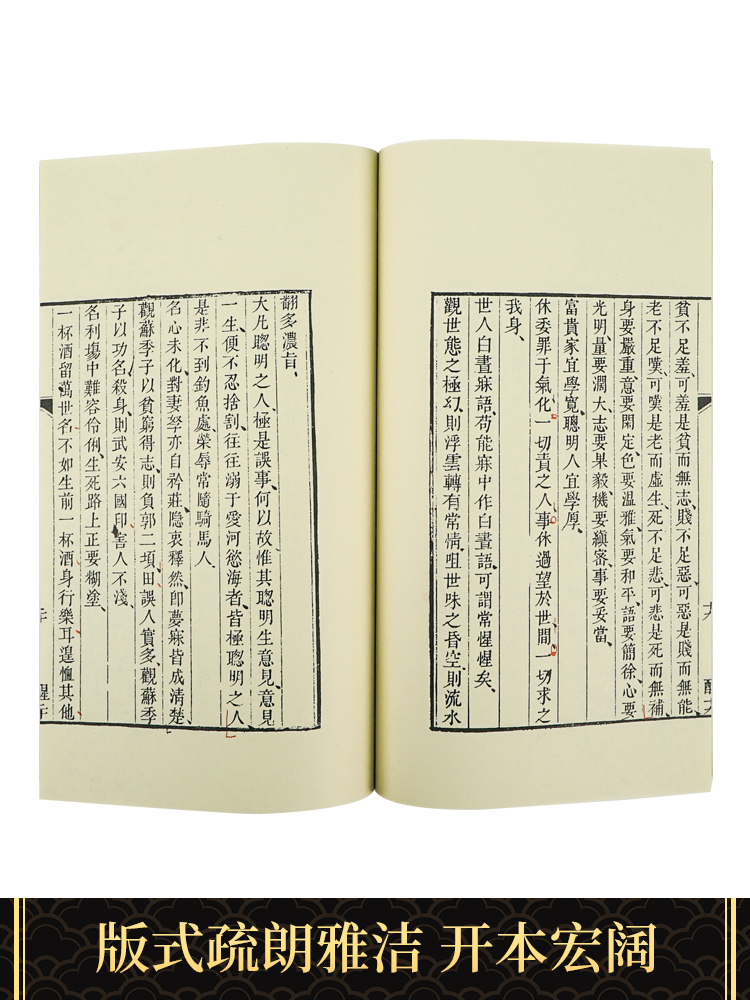 貧不足羞、可羞是貧而無志、賤不足惡、可惡是賤而無能、
老不足嘆、可嘆是老而虛生、死不足悲、可悲是死而無補、
身要嚴重、意要閑定、色要溫雅、氣要和平、語要簡徐、心要
光明、量要濶大、志要果毅、機要縝密、事要妥當、
富貴家宜學寬、聰明人宜學厚、
休委罪于氣化、一切責之人事、休過望於世間、一切求之
我身、
世人白晝寐語、苟能寐中作白晝語、可謂常惺惺矣、
觀世態之極幻、則浮雲轉有常情、咀世味之昏空、則流水
翻多濃旨、
大凡聰明之人、極是誤事、何以故、惟其聰明生意見、意見
一生、便不忍捨割、往往溺于愛河慾海者、皆極聰明之人、
是非不到釣魚處、榮辱常隨騎馬人、
名心未化、對妻孥亦自矜莊、隱衷釋然、即夢寐皆成清楚、
觀蘇季子以貧窮得志、則負郭二頃田、誤人實多、觀蘇季
子以功名殺身、則武安六國印、害人不淺、
名利場中難容伶俐、生死路上正要糊塗、
一杯酒留萬世名、不如生前一杯酒、身行樂耳、遑恤其他
版式疏朗雅洁 开本宏阔